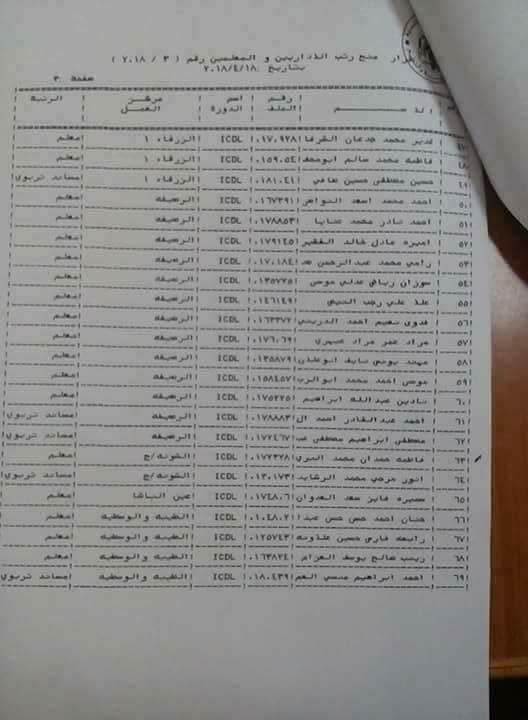 قرار منح رتب الاداريين و المعلمين رقم ( ٣ / ٢٠١٨ )
بتاريخ ٢٠١٨/٤/١٨
صفحة ٣
الاســـــم | رقم الملف | اسم الدورة | مركز العمل | الرتبة
٤٧ | غدير محمد جدعان الشرفا | ٠١٧٠٩٢٨ | ICDL | الزرقاء ١ | معلم
٤٨ | فاطمه محمد سالم ابومحف | ٠١٥٩٠٥٤ | ICDL | الزرقاء ١ | معلم
٤٩ | حسين مصطفى حسين صافي | ٠١٨١٠٤١ | ICDL | الزرقاء ١ | مساند تربوي
٥٠ | احمد محمد اسعد النواهر | ٠١٦٧٣٩١ | ICDL | الرصيفه | معلم
٥١ | احمد نادر محمد عنايا | ٠١٧٨٨٥٣ | ICDL | الرصيفه | معلم
٥٢ | اميره عادل خالد الفقير | ٠١٧٩١٤٥ | ICDL | الرصيفه | معلم
٥٣ | رامي محمد عبدالرحمن | ٠١٧٠١٨٤ | ICDL | الرصيفه | معلم
٥٤ | سوزان رياض عدلي موسى | ٠١٣٥٧٧٥ | ICDL | الرصيفه | معلم
٥٥ | علي رجب | ٠١٤٦١٤٩ | ICDL | الرصيفه | معلم
٥٦ | فدوى نعيم احمد الدريني | ٠١٦٣٣٧٢ | ICDL | الرصيفه | معلم
٥٧ | مراد عمر مراد | ٠١٧٦٠٦٩ | ICDL | الرصيفه | معلم
٥٨ | مهند يونس نايف ابوعلان | ٠١٣٥٨٧٩ | ICDL | الرصيفه | معلم
٥٩ | موسى احمد محمد ابوالرب | ٠١٥٨٤٥٧ | ICDL | الرصيفه | معلم
٦٠ | نادين عبدالله ابراهيم | ٠١٧٥٢٢٥ | ICDL | الرصيفه | معلم
٦١ | احمد عبدالقادر احمد ال | ٠١٧٨٨٨٣ | ICDL | الرصيفه | مساند تربوي
٦٢ | مصطفى ابراهيم مصطفى عب | ٠١٧٢٤٦٧ | ICDL | الرصيفه | مساند تربوي
٦٣ | فاطمه حمدان محمد | ٠١٧٢٣٢٨ | ICDL | الشونه/ج | معلم
٦٤ | انور مرجي محمد الرشايد | ٠١٣٠١٧٣ | ICDL | الشونه/ج | مساند تربوي
٦٥ | سميره فايز سعد العدوان | ٠١٧٤٨٠٦ | ICDL | عين الباشا | معلم
٦٦ | حنان احمد حسن حسن عبد | ٠١٠٤٨٠٢ | ICDL | الطيبه والوسطيه | معلم
٦٧ | رابعه قاري حسين علاونه | ٠١٢٥٧٤٣ | ICDL | الطيبه والوسطيه | معلم
٦٨ | زينب صالح يوسف العزام | ٠١٦٣٨٢٤ | ICDL | الطيبه والوسطيه | معلم
٦٩ | احمد ابراهيم منسي العم | ٠١٨٠٤٣٩ | ICDL | الطيبه والوسطيه | مساند تربوي